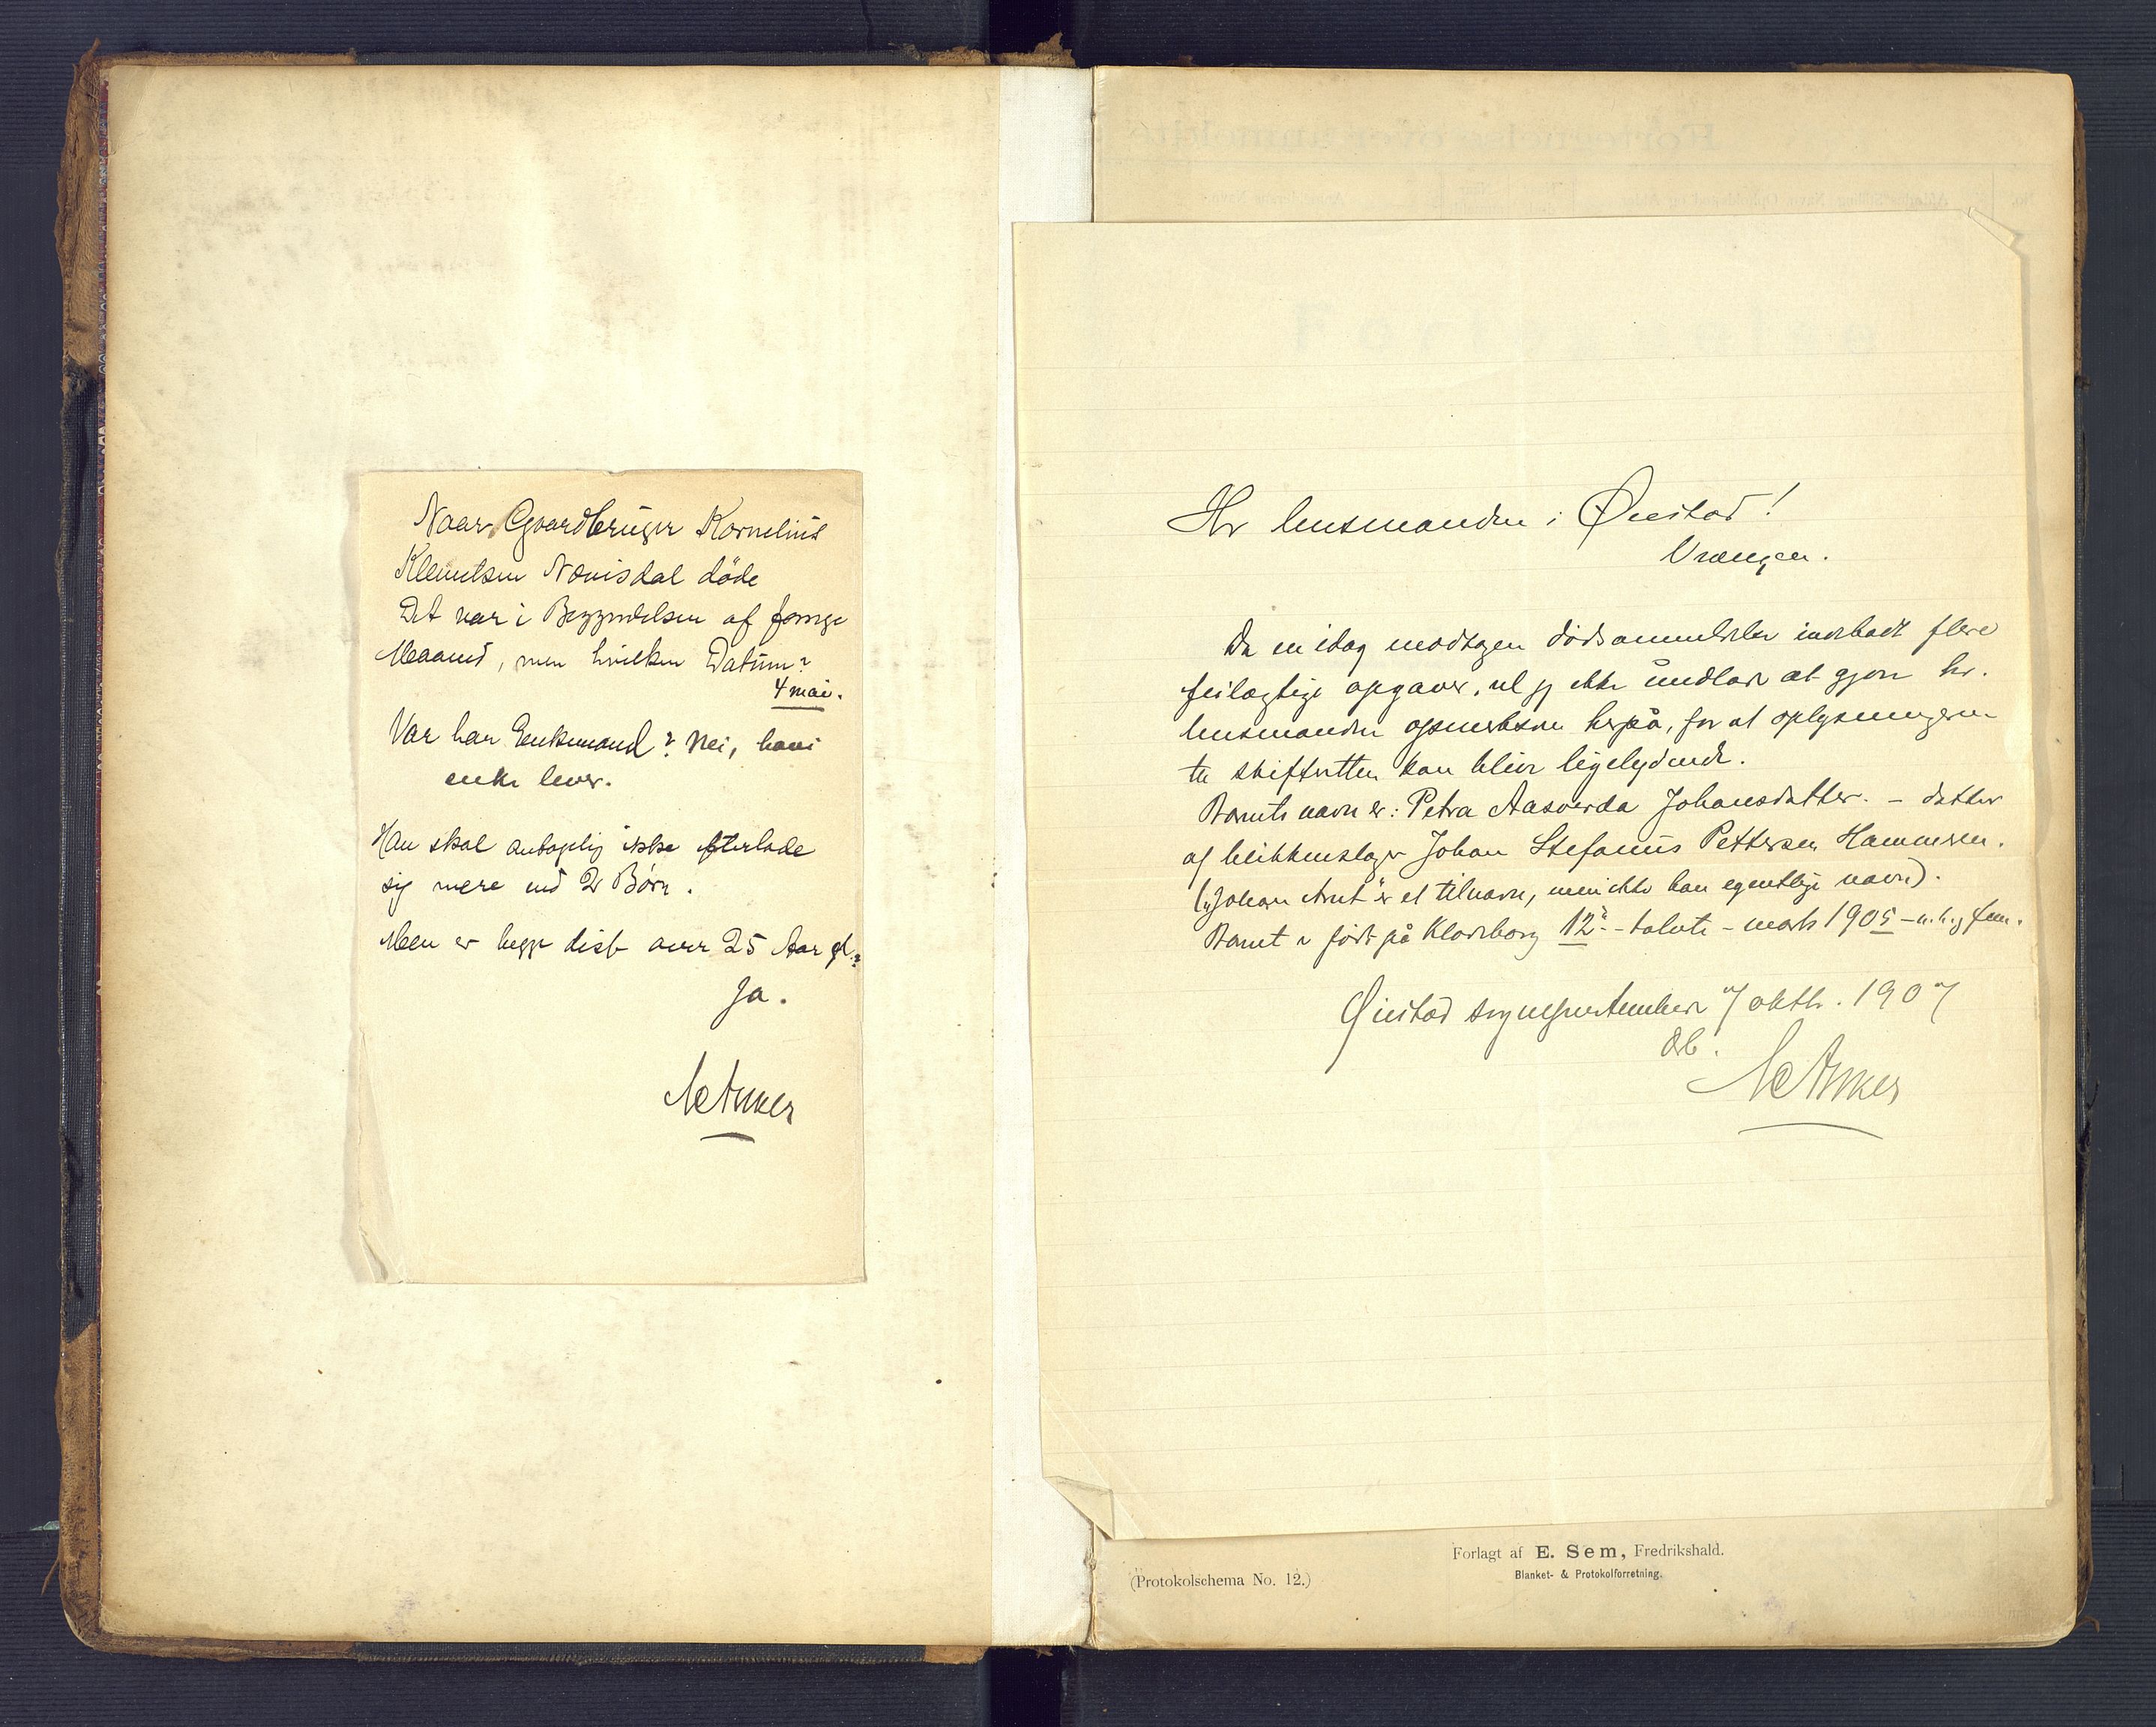 Naar Gaardbruger Kornelius
Klemetsen Nævisdal døde
Det var i Begyndelsen af forrige
Maaned, men hvilken Datum?
4 mai.
Var han Enkemand? Nei, hans
enke lever.
Han skal antagelig ikke efterlade
sig mere end 2 Børn.
Men er begge disse over 25 Aar gl.?
Ja.
M Anker
Hr lensmanden i Øiestad!
Vrængen.
Da en idag modtagen dødsanmeldelse indeholdt flere
feilagtige opgaver, vil jeg ikke undlade at gjøre hr.
lensmanden opmerksom herpå, for at oplysningerne
til skifteretten kan blive ligelydende.
Barnets navn er: Petra Aasverda Johansdatter. – datter
af blikkenslager Johan Stefanus Pettersen Hammeren.
("Johan Arnt" er et tilnavn, men ikke hans egentlige navn).
Barnet er født på Klodeborg 12te – tolvte – marts 1905 – n. h. og fem.
Øiestad sogneprestembede 7 oktb. 1907
Arb.
M Anker
(Protokolschema No. 12.)
Forlagt af E. Sem, Fredrikshald.
Blanket- & Protokolforretning.